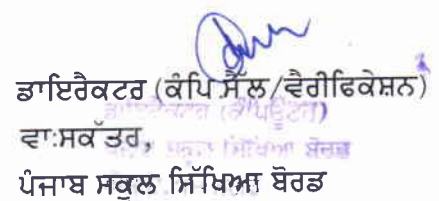 ਡਾਇਰੈਕਟਰ (ਕੰਪਿ ਸੈੱਲ/ਵੈਰੀਫਿਕੇਸ਼ਨ)
ਡਾਇਰੈਕਟਰ (ਕੰਪਿਊਟਰ)
ਵਾ:ਸਕੱਤਰ,
ਪੰਜਾਬ ਸਕੂਲ ਸਿੱਖਿਆ ਬੋਰਡ
ਪੰਜਾਬ ਸਕੂਲ ਸਿੱਖਿਆ ਬੋਰਡ